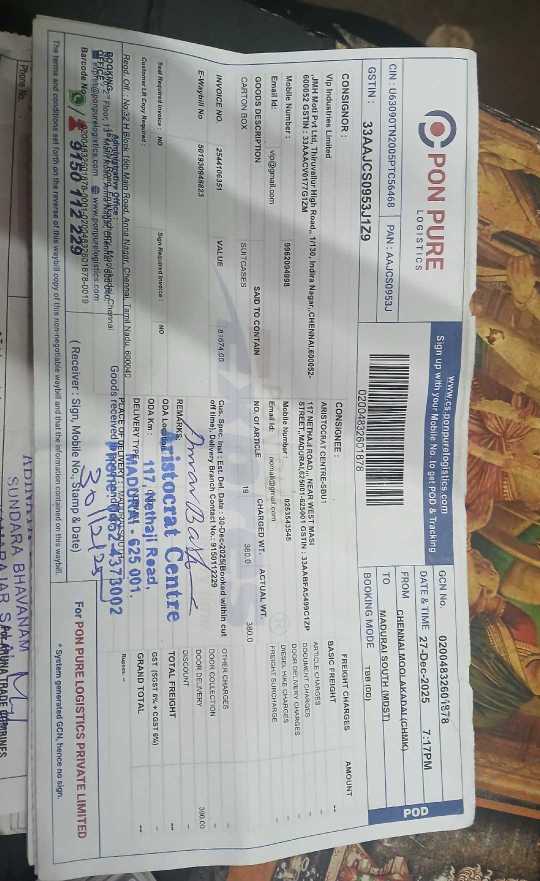 PON PURE
LOGISTICS
www.cs.ponpurelogistics.com
Sign up with your Mobile No. to get POD & Tracking
CIN : U63090TN2005PTC56468
PAN : AAJCS0953J
GSTIN : 33AAJCS0953J1Z9
02004832601878
GCN No. 02004832601878
DATE & TIME 27-Dec-2025 7:17PM
FROM CHENNAI MOOLAKADAI (CHMK)
TO MADURAI SOUTH (MDST)
BOOKING MODE TBB (DD)
POD
CONSIGNOR :
Vip Industries Limited
,JMJH Motl Pvt Ltd, Thiruvallur High Road,, 1/130, Indira Nagar,,CHENNAI,600052-
600052 GSTIN : 33AAACV0177G1ZM
Mobile Number : 9962094998
Email Id: vip@gmail.com
CONSIGNEE :
ARISTOCRAT CENTRE-SBU1
117 NETHAJI ROAD,, NEAR WEST MASI
STREET,MADURAI,625001-625001 GSTIN : 33AABFA5499C1ZP
Mobile Number
Email Id: @gmail.com
GOODS DESCRIPTION SAID TO CONTAIN NO. OF ARTICLE CHARGED WT. ACTUAL WT.
CARTON BOX SUITCASES 19 380.0 380.0
INVOICE NO 2544106351 VALUE 81674.00
E-Waybill No 501930948823
Cus. Spec. Inst : Est. Del. Date : 30-Dec-2025(Booked within cut
off time), Delivery Branch Contact No.: 9150112229
Seal Required Invoice : NO Sign Required Invoice : NO
Customer LR Copy Required :
REMARKS:
ODA Location
ODA Km :
DELIVERY TYPE
PLACE OF DELIVERY
FREIGHT CHARGES AMOUNT
BASIC FREIGHT --
ARTICLE CHARGES
DOCUMENT CHARGES
DOOR DELIVERY CHARGES
DIESEL HIKE CHARGES
FREIGHT SURCHARGE
OTHER CHARGES
DOOR COLLECTION
DOOR DELIVERY 390.00
DISCOUNT
TOTAL FREIGHT --
GST (SGST 6% + CGST 6%)
GRAND TOTAL --
Rupees: --
Aristocrat Centre
117, Nethaji Road,
MADURAI - 625 001.
Phone: 0452-4373002
Goods received
30/12/25
( Receiver : Sign, Mobile No., Stamp & Date)
Administrative Office :
BOOKING
OFFICE
www.ponpurelogistics.com
Barcode No
9150 112 229
For PON PURE LOGISTICS PRIVATE LIMITED
* System generated GCN, hence no sign.
The terms and conditions set forth on the reverse of this waybill copy of this non-negotiable waybill and that the information contained on this waybill.
Phone No.
SUNDARA BHAVANAM